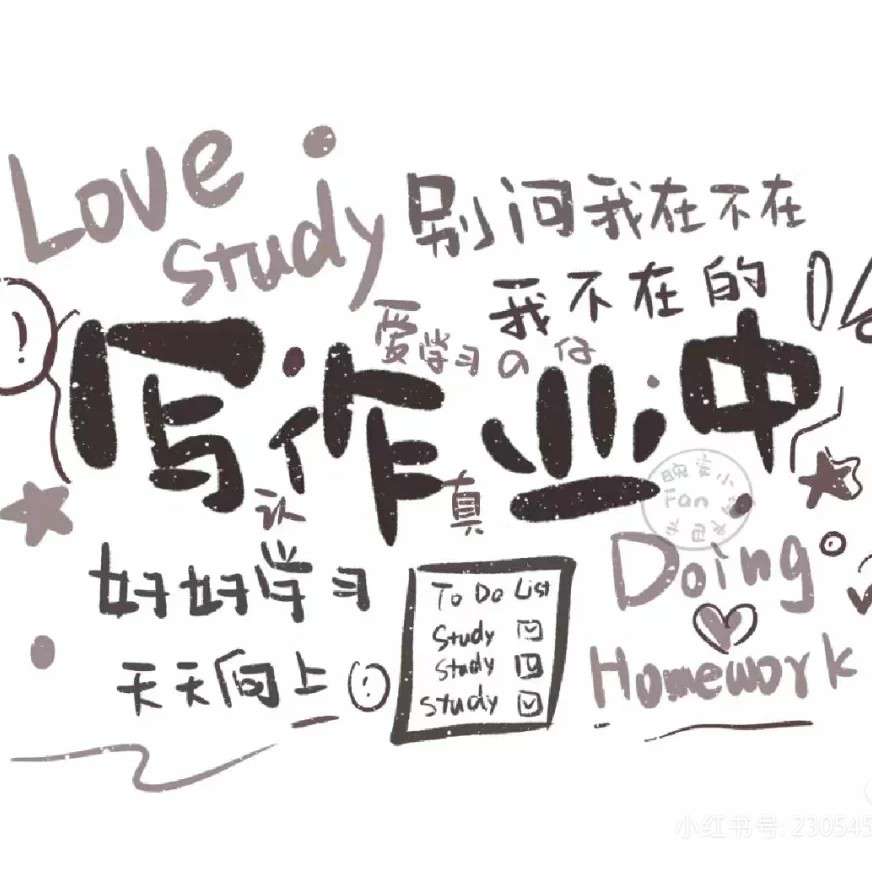 Love
study
别问我在不在
我不在的
爱学习の仔
写作业中
认真
好好学习
天天向上
To Do List
study
study
study
Doing
Homework
Fan
小红书号: 230545